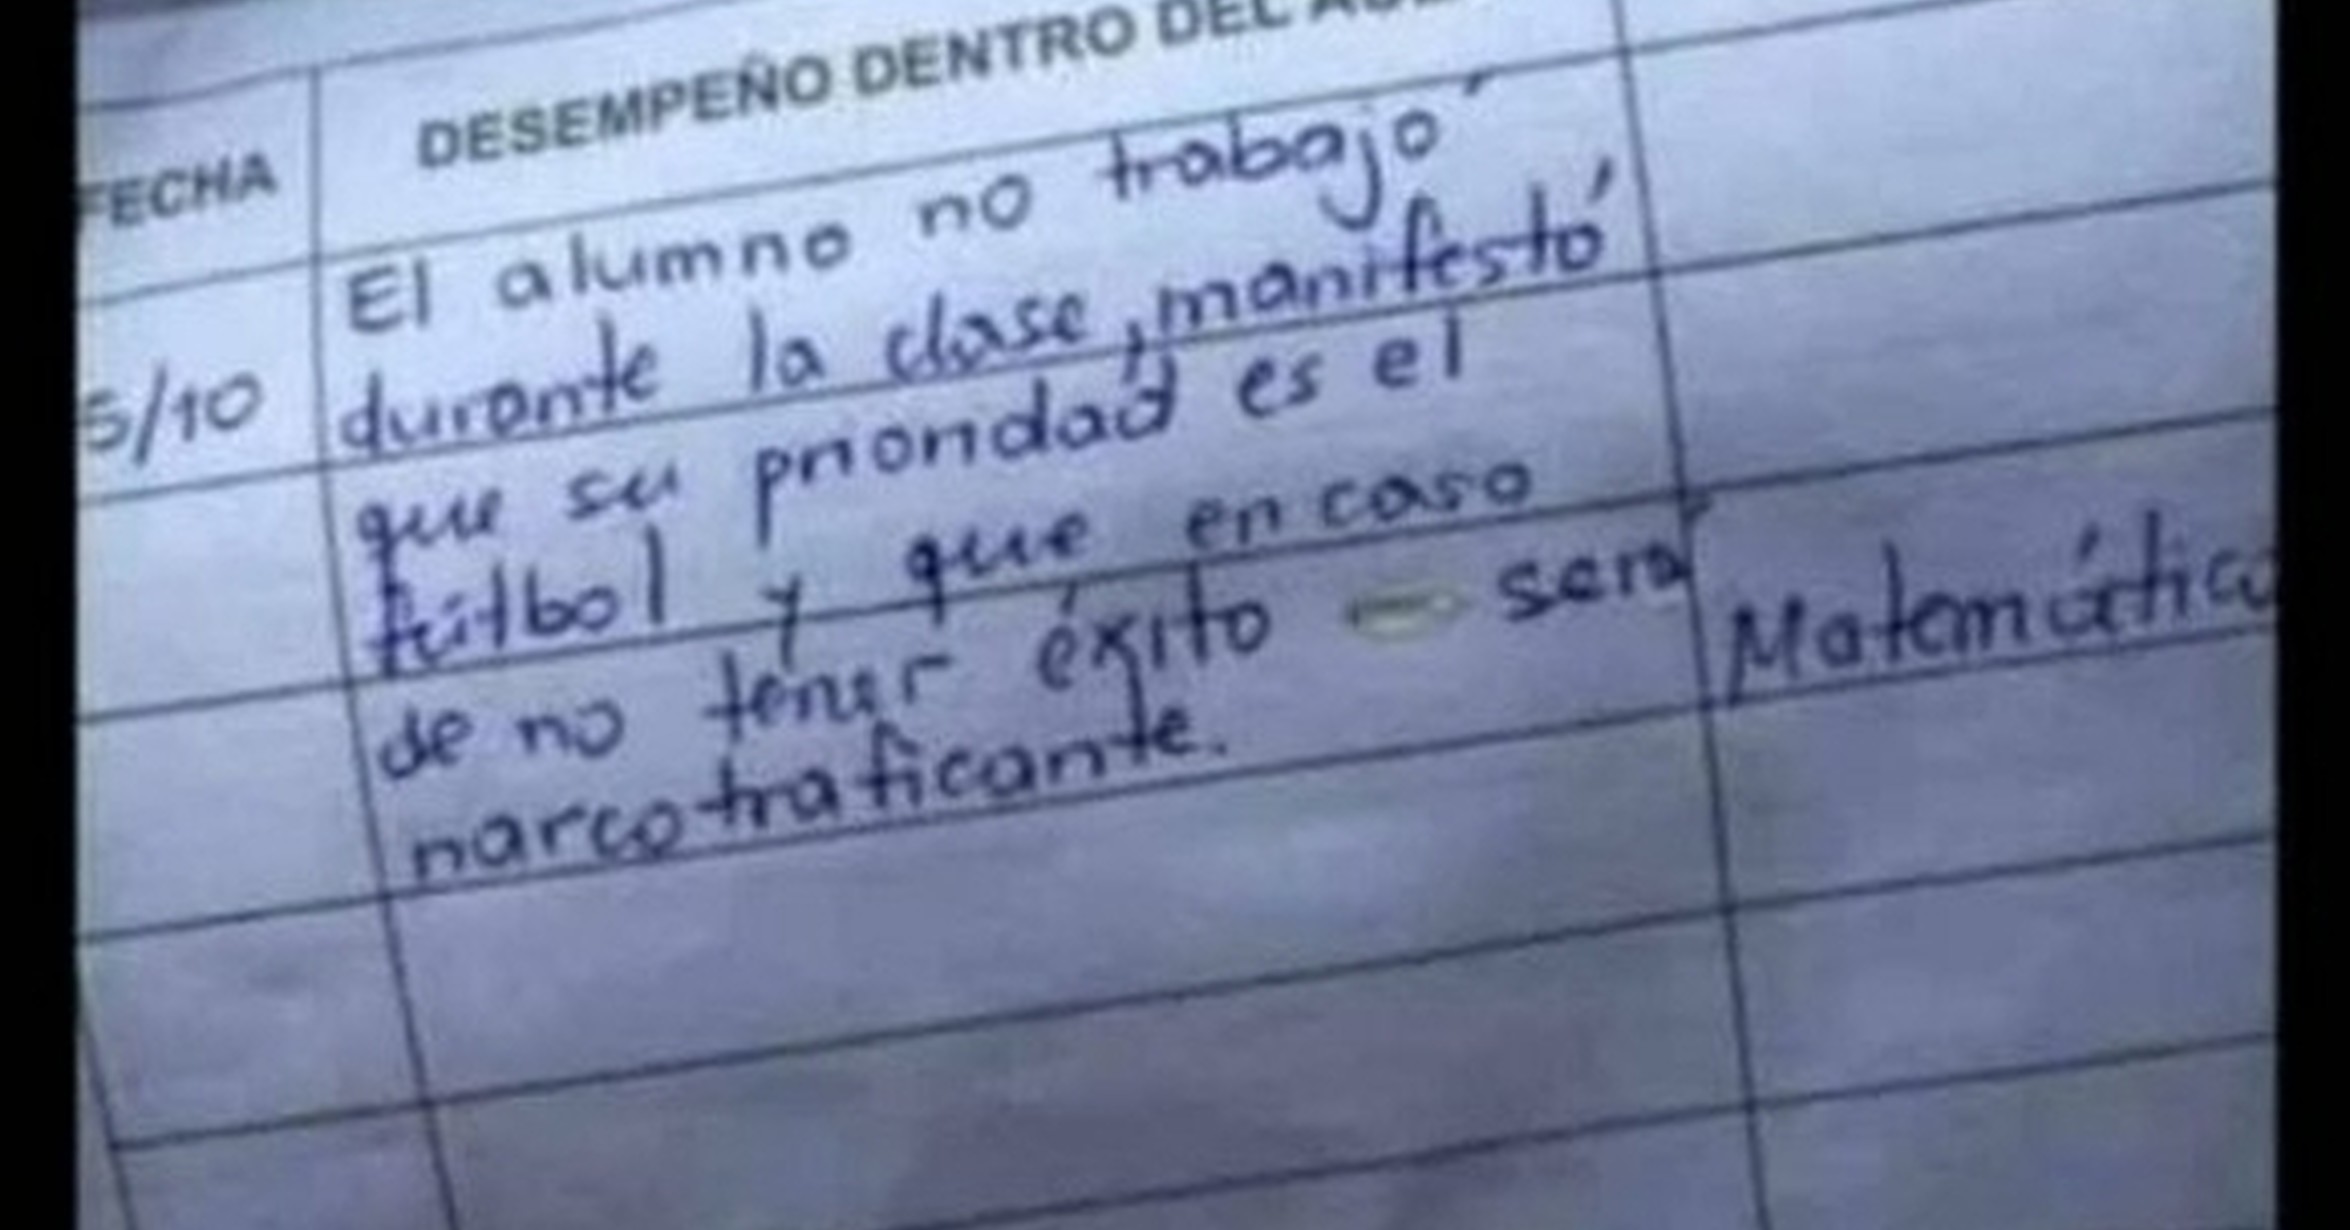 FECHA DESEMPEÑO DENTRO DEL
El alumno no trabajó
durante la clase, manifestó
5/10
que su prioridad es el
fútbol y que en caso
de no tener éxito será
narcotraficante.
Matemática